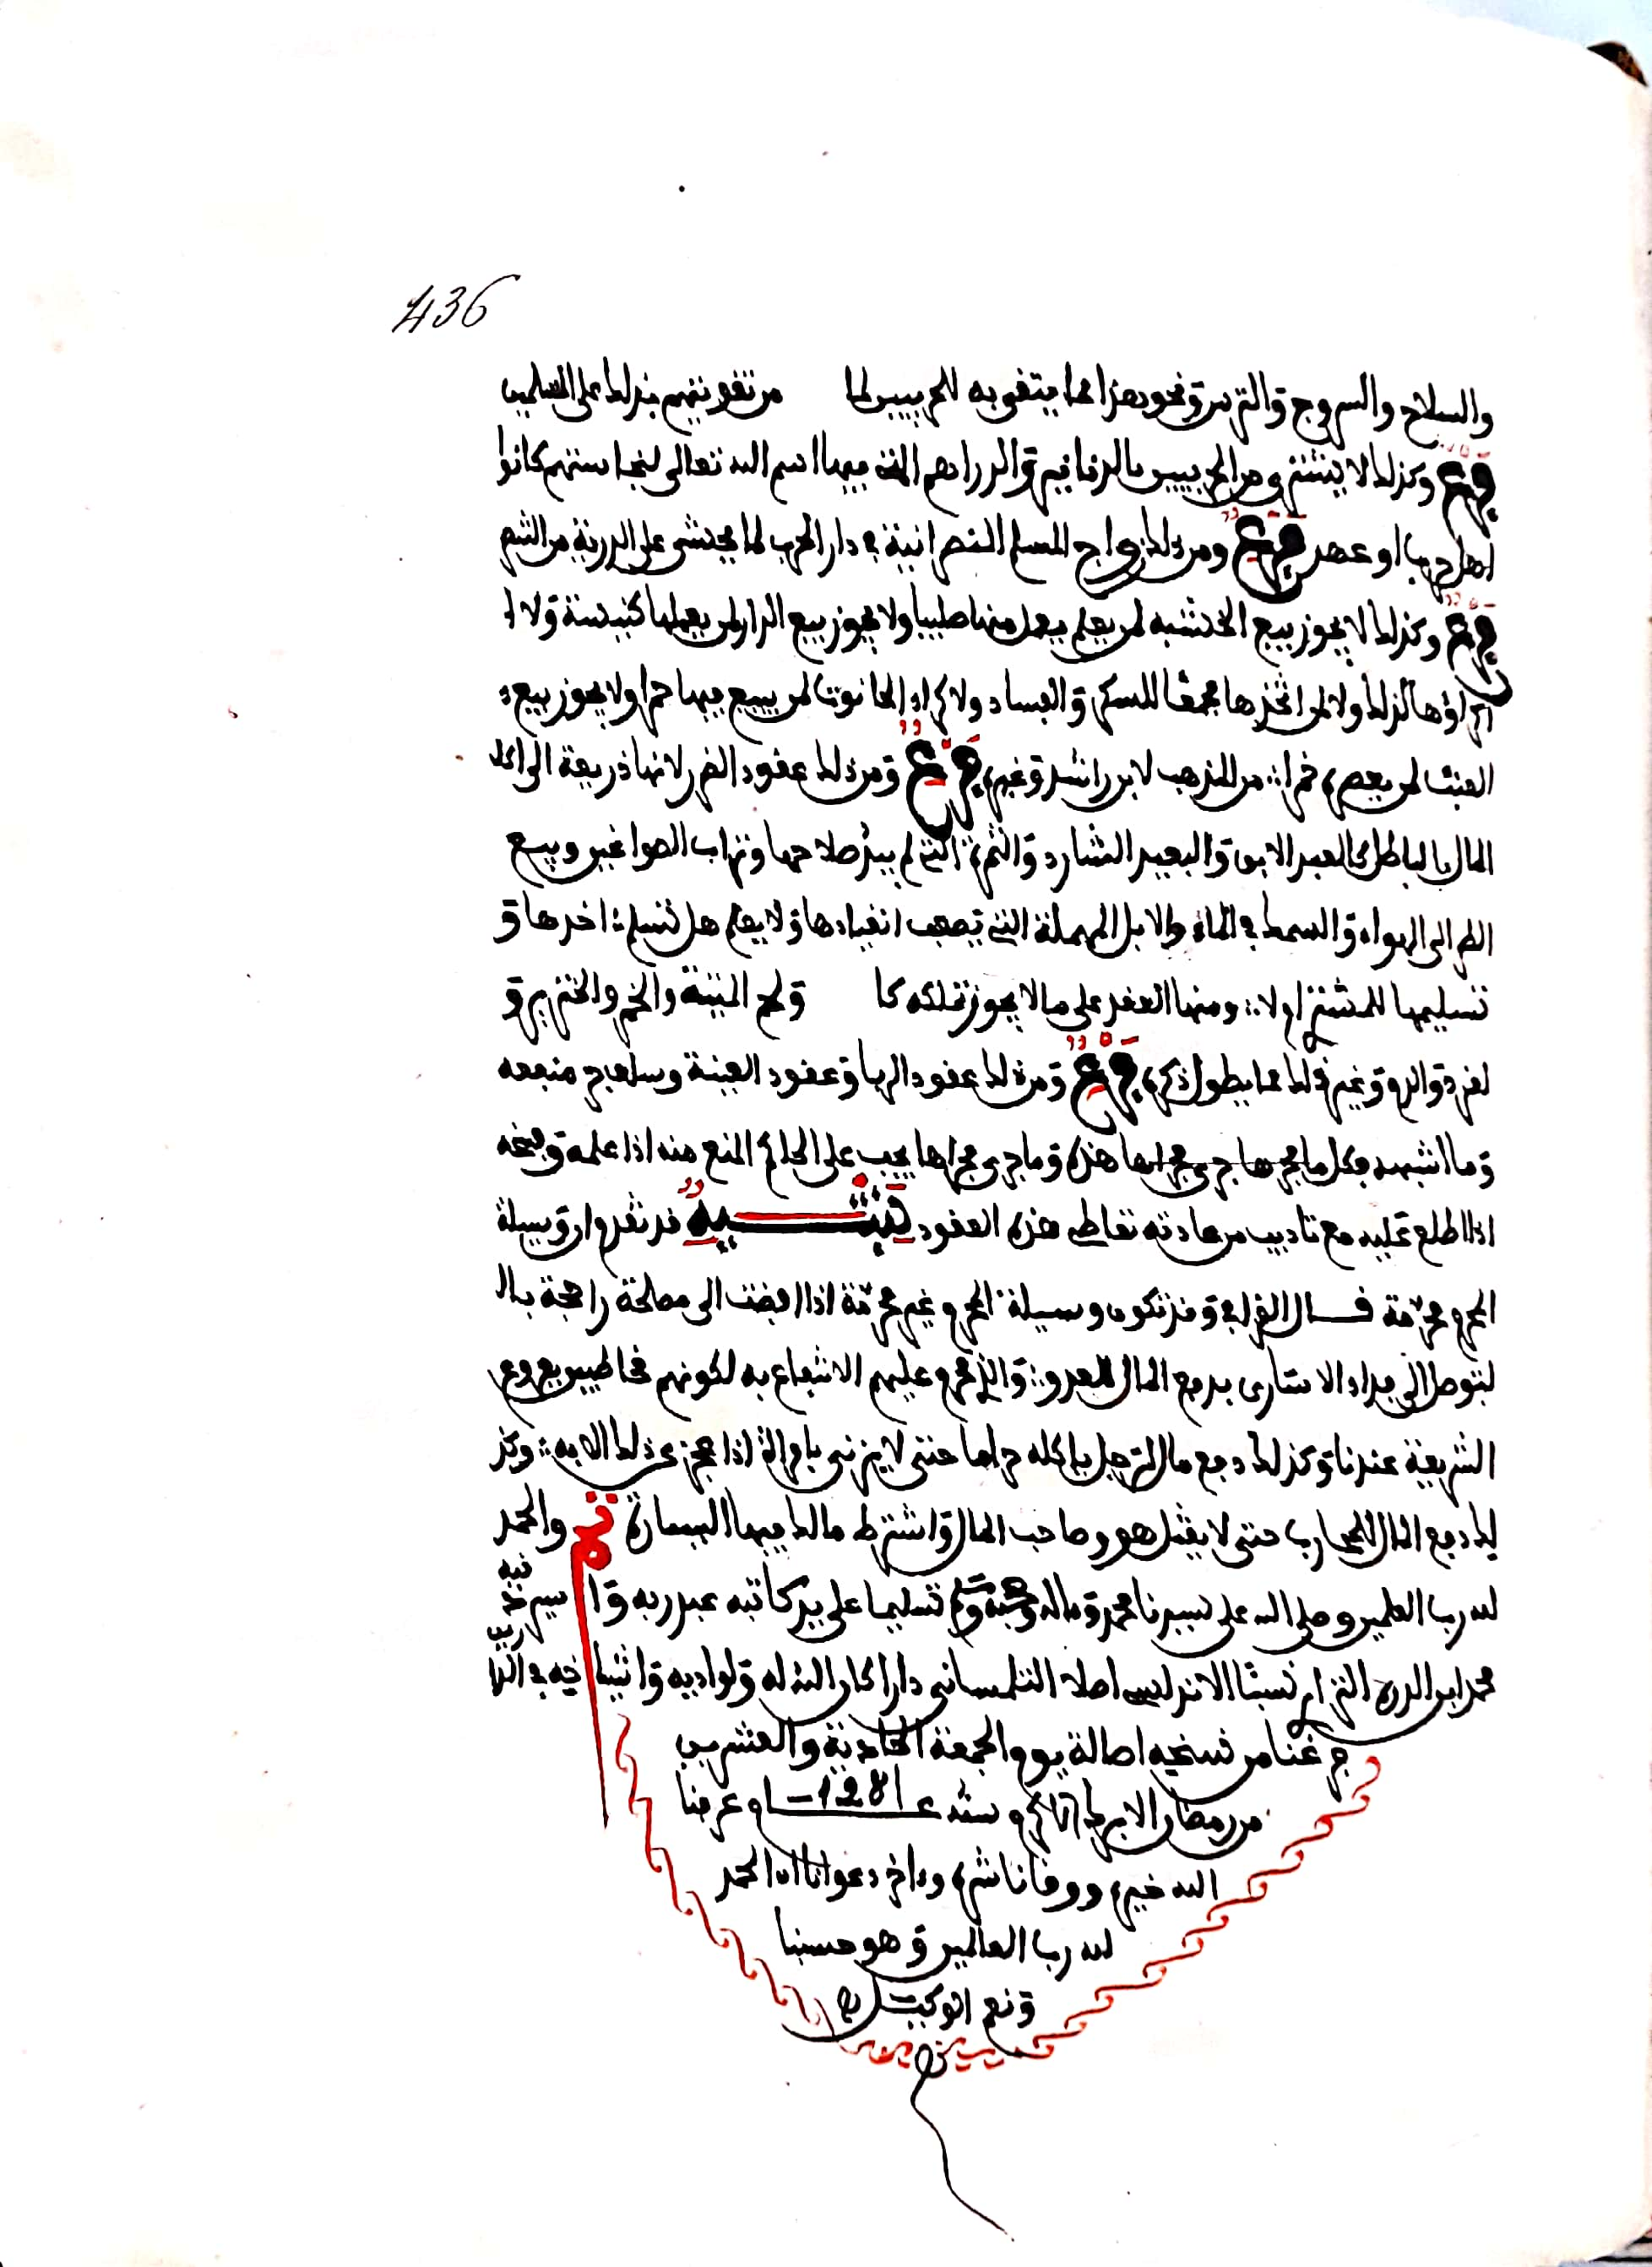 436
والسلاح والسروج والترس ونحو هذا مما يتقوى به للحربيين لما من تقويتهم بذلك على المسلمين
فرع وكذلك لا يشترى من الحربيين بالدنانير والدراهم التي فيها اسم الله تعالى لنجاستهم كانوا
اهل حرب او عهد فرع ومن ذلك زواج المسلم النصرانية في دار الحرب لما يخشى على الذرية من
فرع وكذلك لا يجوز بيع الخشبة لمن يعلم يعمل منها صليبا ولا يجوز بيع الدار لمن يعملها كنيسة ولا ا
كراؤها كذلك ولا لمن اتخذها مجمعا للسكر والفساد ولا كراء الحانوت لمن يبيع فيها خمرا ولا يجوز بيع
العنب لمن يعصره خمرا من المذهب لابن راشد وغيره فرع ومن ذلك عقود الغرر لانها ذريعة الى اكل
المال بالباطل كالعبد الابق والبعير الشارد والثمرة التي لم يبد صلاحها وتراب الصواغين وبيع
الطير الى الهواء والسمك في الماء والابل المهملة التي تصعب انقيادها ولا يعلم هل تسلم اخذها و
تسليمها للمشتري ام لا ومنها العقد على ما لا يجوز تملكه كا ولحم الميتة والخمر والخنزير و
القرد والدم وغير ذلك مما يطول ذكره فرع ومن ذلك عقود الربا وعقود العينة وسلف جر منفعه
وما اشبهه فكل ما مجرها جرى مجراها هذه وما جرى مجراها يجب على الحاكم المنع منه اذا علمه وفسخه
اذا اطلع عليه مع تاديب من عادته تعاطي هذه العقود تنبيه قد تقدم ان وسيلة
المحرم محرمة قال القرافي وقد تكون وسيلة المحرم غير محرمة اذا افضت الى مصلحة راجحة بال
لتوصل الى فداء الاسارى بدفع المال للعدو والذي محرم عليهم الانتفاع به لكونهم مخاطبين بفروع
الشريعة عندنا وكذلك دفع مال لرجل ياكله حراما حتى لا يزني بامراة اذا عجز عن ذلك الا به وكذ
لك دفع المال للمحارب حتى لا يقتل هو وصاحب المال واشترط مالك فيها اليسارة تم والحمد
لله رب العلمين وصلى الله على سيدنا محمد وءاله وصحبه وسلم تسليما على يد كاتبه عبد ربه وا سير ذنبه
محمد ابن نسبا الاندلسي اصلا التلمساني دارا كان الله له ولوالديه واشياخه في الدارين
فرغنا من نسخه اصالة يوم الجمعة الحادية والعشرين
من رمضان الابرك الاكرم سنة ع 1281 عرفنا
الله خيره ووقانا شره وءاخر دعوانا ان الحمد
لله رب العالمين وهو حسبنا
ونعم الوكيل